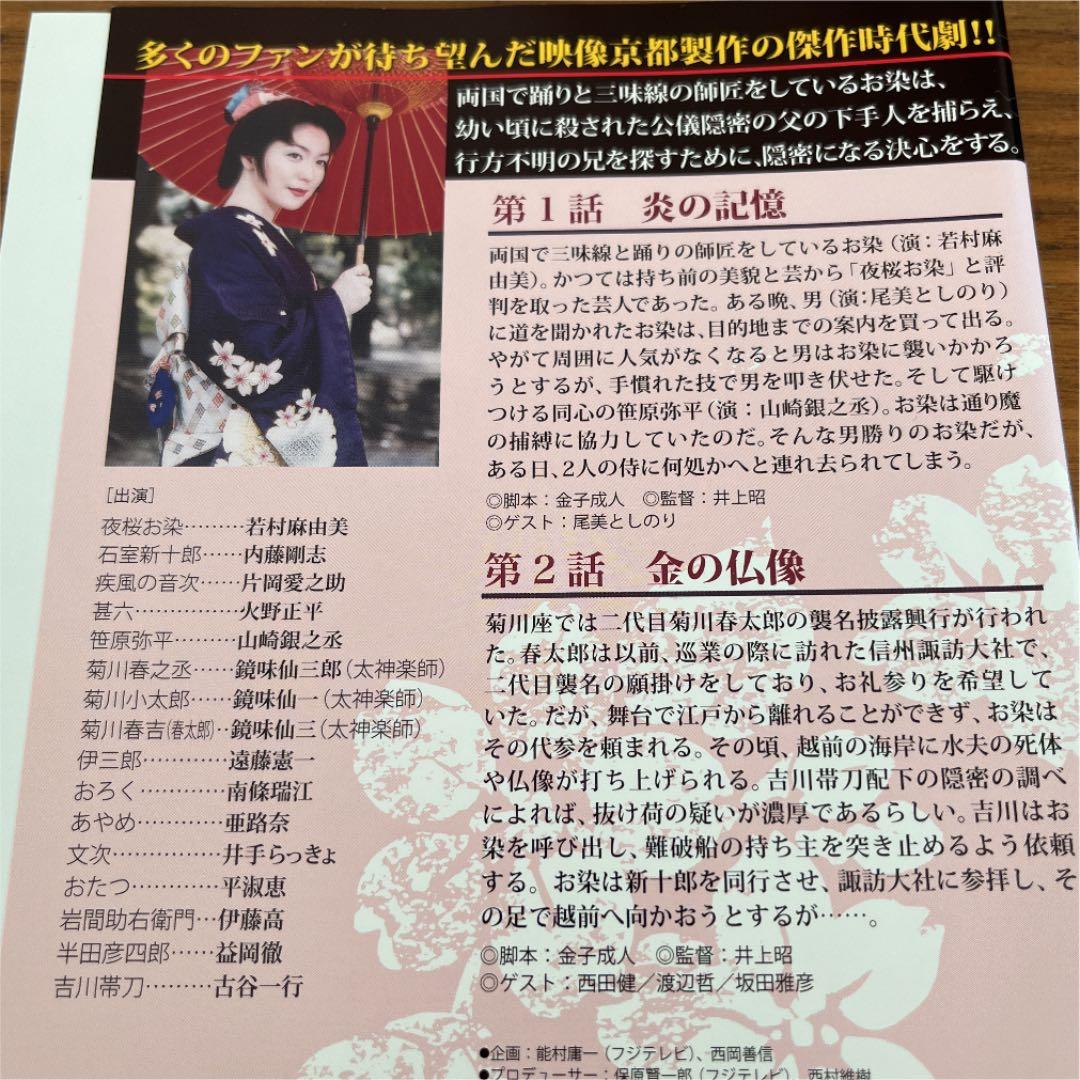 多くのファンが待ち望んだ映像京都製作の傑作時代劇!!
両国で踊りと三味線の師匠をしているお染は、
幼い頃に殺された公儀隠密の父の下手人を捕らえ、
行方不明の兄を探すために、隠密になる決心をする。
第1話 炎の記憶
両国で三味線と踊りの師匠をしているお染(演:若村麻
由美)。かつては持ち前の美貌と芸から「夜桜お染」と評
判を取った芸人であった。ある晩、男(演:尾美としのり)
に道を聞かれたお染は、目的地までの案内を買って出る。
やがて周囲に人気がなくなると男はお染に襲いかかろ
うとするが、手慣れた技で男を叩き伏せた。そして駆け
つける同心の笹原弥平(演:山崎銀之丞)。お染は通り魔
の捕縛に協力していたのだ。そんな男勝りのお染だが、
ある日、2人の侍に何処かへと連れ去られてしまう。
◎脚本:金子成人 ◎監督:井上昭
◎ゲスト:尾美としのり
第2話 金の仏像
菊川座では二代目菊川春太郎の襲名披露興行が行われ
た。春太郎は以前、巡業の際に訪れた信州諏訪大社で、
二代目襲名の願掛けをしており、お礼参りを希望して
いた。だが、舞台で江戸から離れることができず、お染は
その代参を頼まれる。その頃、越前の海岸に水夫の死体
や仏像が打ち上げられる。吉川帯刀配下の隠密の調べ
によれば、抜け荷の疑いが濃厚であるらしい。吉川はお
染を呼び出し、難破船の持ち主を突き止めるよう依頼
する。お染は新十郎を同行させ、諏訪大社に参拝し、そ
の足で越前へ向かおうとするが……。
◎脚本:金子成人 ◎監督:井上昭
◎ゲスト:西田健/渡辺哲/坂田雅彦
[出演]
夜桜お染………若村麻由美
石室新十郎……内藤剛志
疾風の音次……片岡愛之助
甚六……………火野正平
笹原弥平………山崎銀之丞
菊川春之丞……鏡味仙三郎(太神楽師)
菊川小太郎……鏡味仙一(太神楽師)
菊川春吉(春太郎)‥鏡味仙三(太神楽師)
伊三郎…………遠藤憲一
おろく…………南條瑞江
あやめ…………亜路奈
文次……………井手らっきょ
おたつ…………平淑恵
岩間助右衛門…伊藤高
半田彦四郎……益岡徹
吉川帯刀………古谷一行
●企画:能村庸一(フジテレビ)、西岡善信
●プロデューサー:保原賢一郎(フジテレビ)、西村維樹